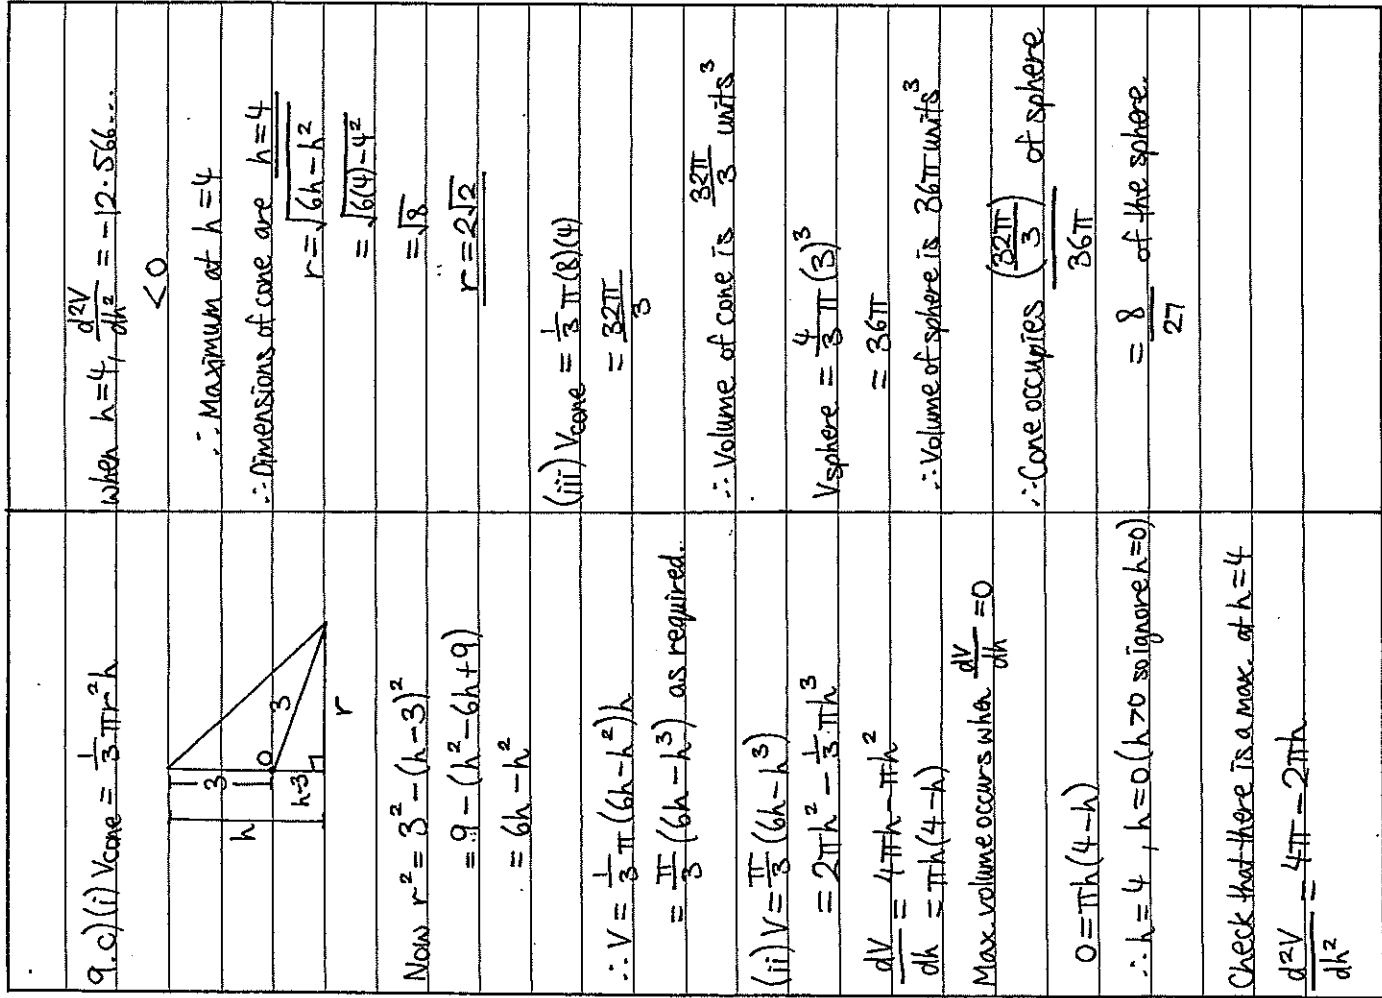 9.c)(i) Vcone = 1/3 πr²h
h
3
h-3
O
3
r
Now r² = 3² - (h-3)²
= 9 - (h² - 6h + 9)
= 6h - h²
∴ V = 1/3 π (6h - h²)h
= π/3 (6h - h³) as required.
(ii) V = π/3 (6h - h³)
= 2πh² - 1/3 πh³
dV/dh = 4πh - πh²
= πh(4-h)
Max. volume occurs when dV/dh = 0
0 = πh(4-h)
∴ h = 4 , h = 0 (h > 0 so ignore h = 0)
Check that there is a max. at h = 4
d²V/dh² = 4π - 2πh
When h = 4, d²V/dh² = -12.566...
< 0
∴ Maximum at h = 4
∴ Dimensions of cone are h = 4
r = √(6h - h²)
= √(6(4) - 4²)
= √8
r = 2√2
(iii) Vcone = 1/3 π(8)(4)
= 32π/3
∴ Volume of cone is 32π/3 units³
Vsphere = 4/3 π (3)³
= 36π
∴ Volume of sphere is 36π units³
∴ Cone occupies (32π/3)/36π of sphere
= 8/27 of the sphere.